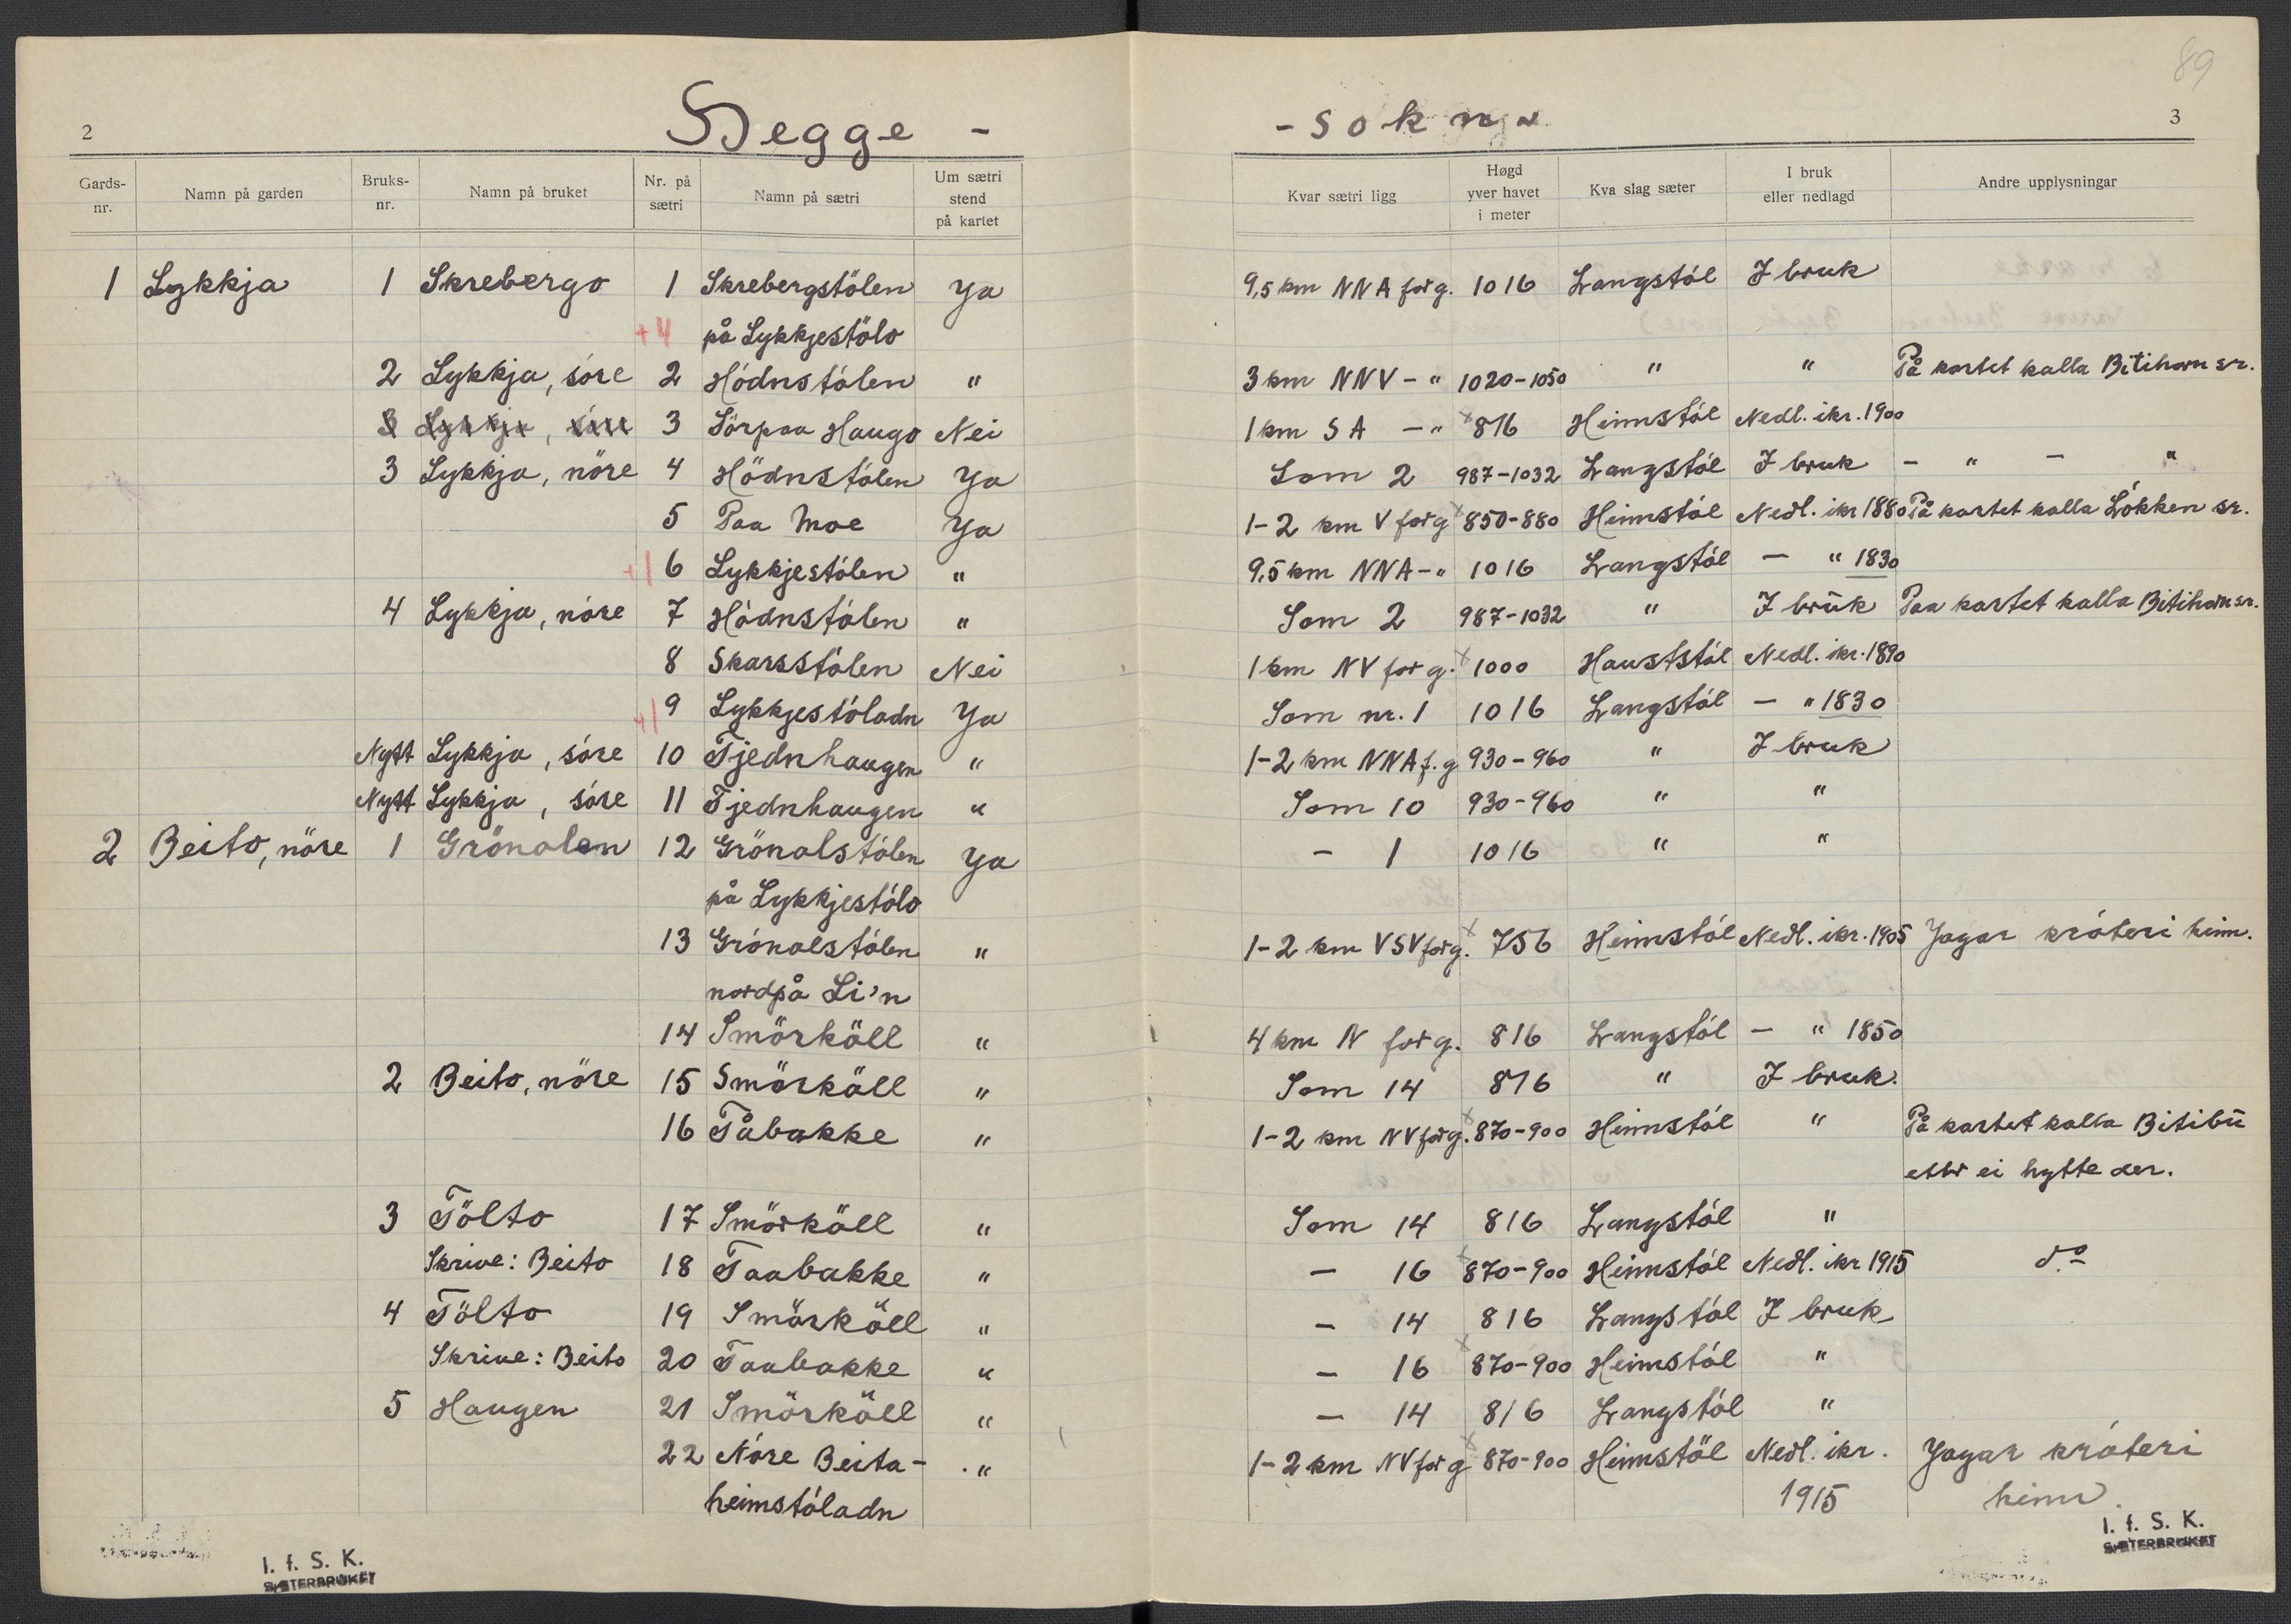 89
2
Hegge -
- sokna
3
Gards-nr. Namn på garden Bruks-nr. Namn på bruket Nr. på sætri Namn på sætri Um sætri stend på kartet Kvar sætri ligg Høgd yver havet i meter Kva slag sæter I bruk eller nedlagd Andre upplysningar
1 Lykkja 1 Skrebergo 1 Skrebergstölen Ja 9,5 km NNA for g. 1016 Langstöl I bruk
+4 på Lykkjestölo
2 Lykkja, söre 2 Hödnstölen " 3 km NNV - " 1020-1050 " " På kartet kalla Bitihorn sr.
3 Lykkja, söre 3 Sörpaa Haugo Nei 1 km SA - " x 816 Heimstöl Nedl. ikr. 1900
3 Lykkja, nöre 4 Hödnstölen Ja Som 2 987-1032 Langstöl I bruk - " - "
5 Paa Moe Ja 1-2 km V for g x 850-880 Heimstöl Nedl. ikr 1880 På kartet kalla Lökken sr.
+1 6 Lykkjestölen " 9,5 km NNA - " 1016 Langstöl - " 1830
4 Lykkja, nöre 7 Hödnstölen " Som 2 987-1032 " I bruk Paa kartet kalla Bitihorn sr.
8 Skarsstölen Nei 1 km NV for g. x 1000 Hauststöl Nedl. ikr. 1890
+1 9 Lykkjestöladn Ja Som nr. 1 1016 Langstöl - " 1830
Nytt Lykkja, söre 10 Tjednhaugen " 1-2 km NNA f. g 930-960 " I bruk
Nytt Lykkja, söre 11 Tjednhaugen " Som 10 930-960 " "
2 Beito, nöre 1 Grönolen 12 Grönolstölen Ja - 1 1016 " "
på Lykkjestölo
13 Grönolstölen " 1-2 km VSV for g. x 756 Heimstöl Nedl. ikr. 1905 Jagar kröteri heim.
nordpå Li'n
14 Smörköll " 4 km N for g. 816 Langstöl - " 1850
2 Beito, nöre 15 Smörköll " Som 14 816 " I bruk.
16 Tåbakke " 1-2 km NV for g. x 870-900 Heimstöl " På kartet kalla Bitibu
etter ei hytte der.
3 Tölto 17 Smörköll " Som 14 816 Langstöl "
Skrive: Beito 18 Taabakke " - 16 x 870-900 Heimstöl Nedl. ikr 1915 do
4 Tölto 19 Smörköll " - 14 816 Langstöl I bruk
Skrive: Beito 20 Taabakke " - 16 x 870-900 Heimstöl "
5 Haugen 21 Smörköll " - 14 816 Langstöl "
22 Nöre Beita- " 1-2 km NV for g x 870-900 Heimstöl Nedl. ikr. Jagar kröteri
heimstöladn 1915 heim.
I. f. S. K.
SÆTERBRUKET
I. f. S. K.
SÆTERBRUKET